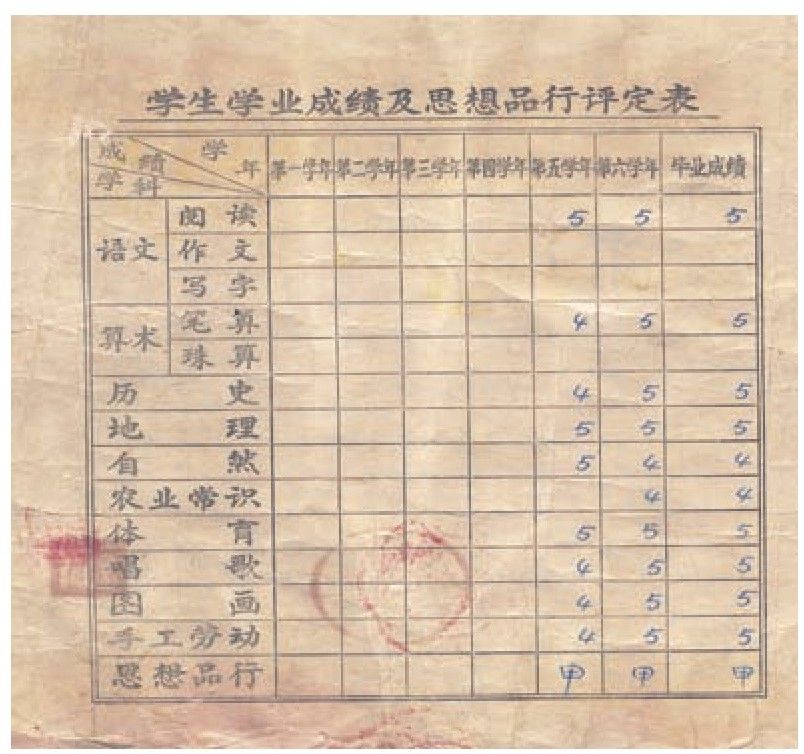 学生学业成绩及思想品行评定表
成绩 学年 学科 第一学年 第二学年 第三学年 第四学年 第五学年 第六学年 毕业成绩
语文 阅读 5 5 5
作文
写字
算术 笔算 4 5 5
珠算
历史 4 5 5
地理 5 5 5
自然 5 4 4
农业常识 4 4
体育 5 5 5
唱歌 4 5 5
图画 4 5 5
手工劳动 4 5 5
思想品行 甲 甲 甲